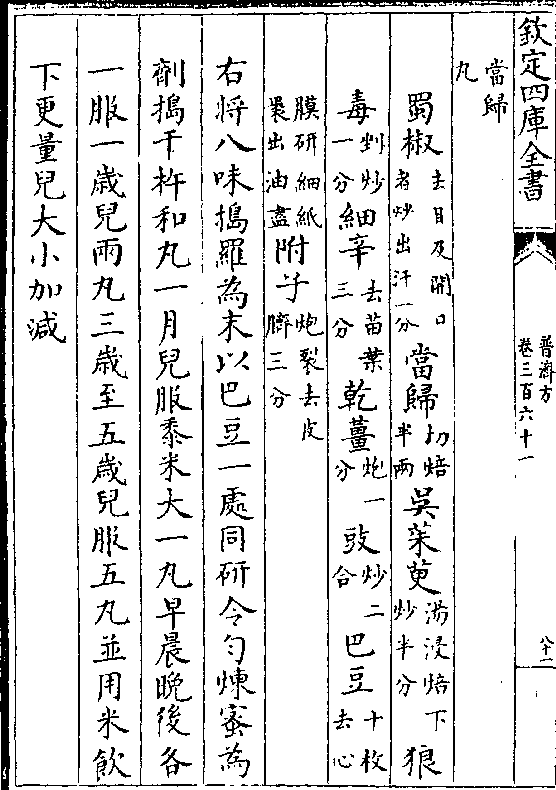 欽定四庫全書
普濟方
卷三百六十一
八十二
當歸
丸
蜀椒去目及開口者炒出汗一分當歸切焙半兩吳茱萸湯浸焙炒半分下狼
毒剉炒一分細辛去苗葉三分乾薑炮一分豉炒二合巴豆十枚去心
膜研細紙裹出油盡附子炮裂去皮臍三分
右將八味搗羅為末以巴豆一處同研令勻煉蜜為
劑搗千杵和丸一月兒服黍米大一丸早晨晚後各
一服一歳兒兩丸三歳至五歳兒服五丸並用米飲
下更量兒大小加減